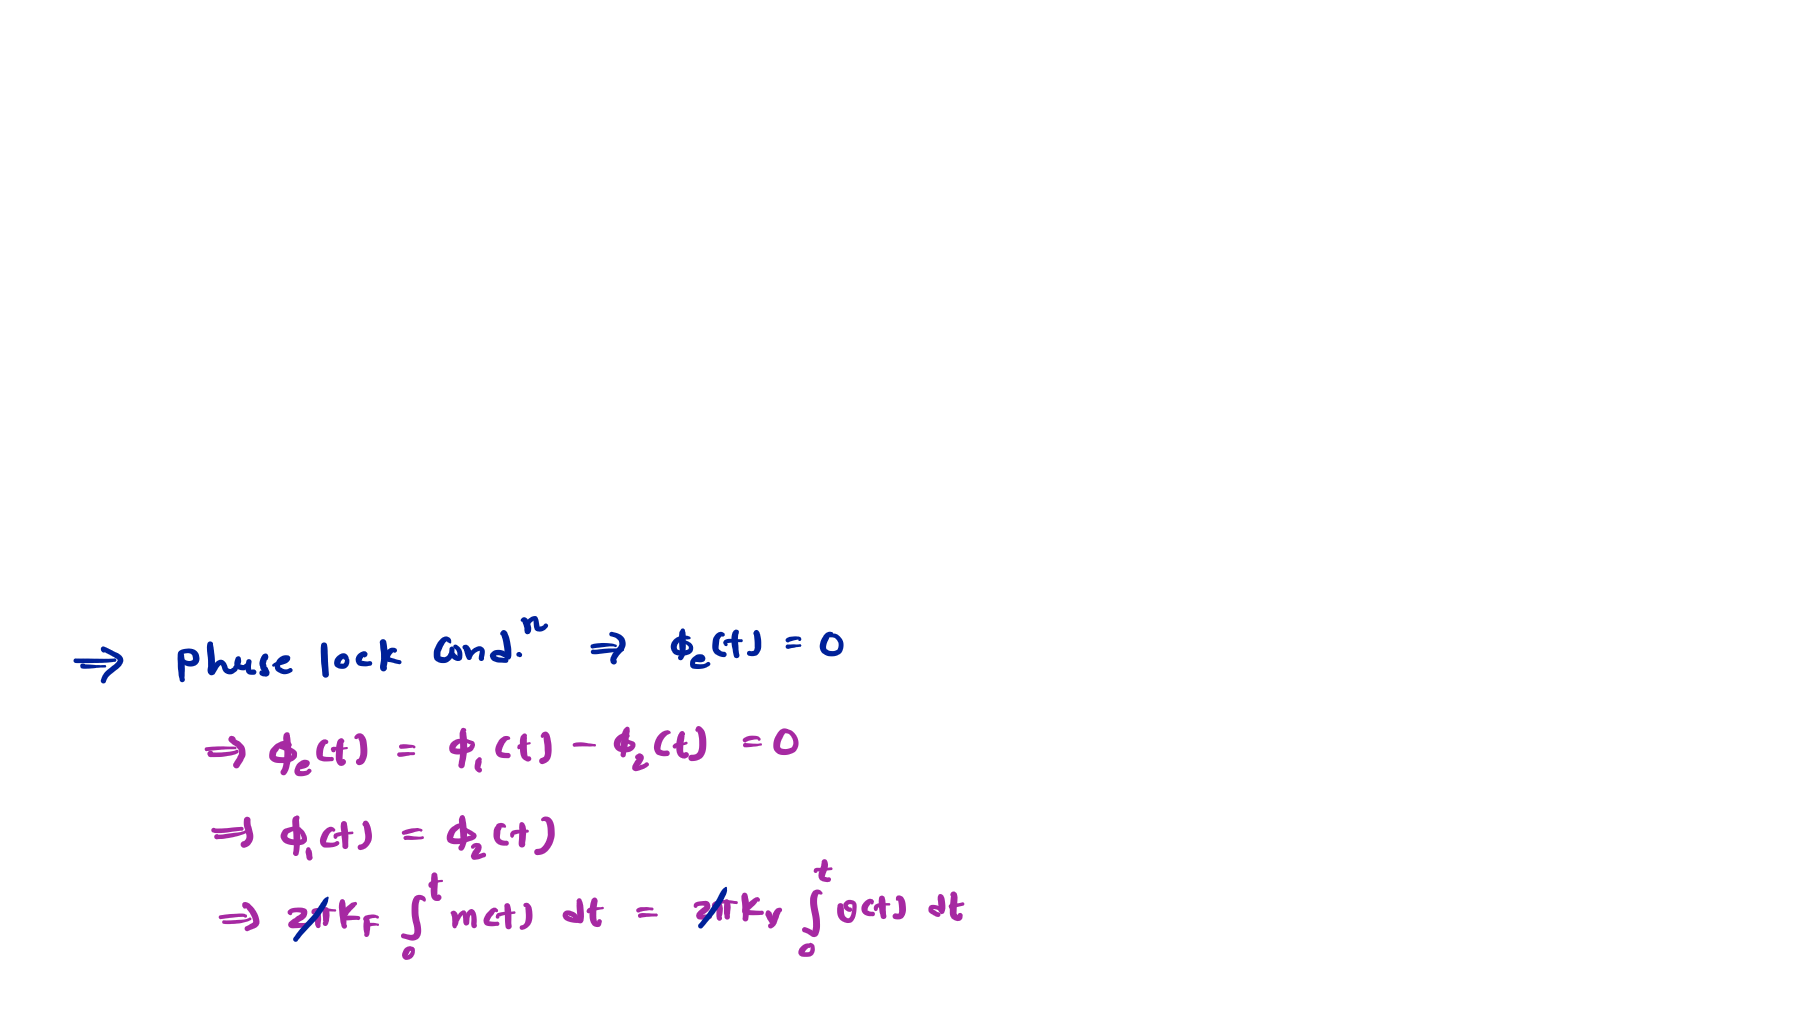 ⇒ Phase lock Cond.ⁿ ⇒ ϕₑ(t) = 0
⇒ ϕₑ(t) = ϕ₁(t) − ϕ₂(t) = 0
⇒ ϕ₁(t) = ϕ₂(t)
⇒ 2πk_F ∫₀ᵗ m(t) dt = 2πk_v ∫₀ᵗ v(t) dt